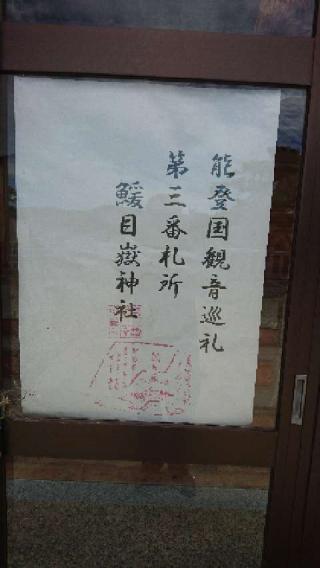 能登国観音巡礼
第三番札所
鰀目嶽神社